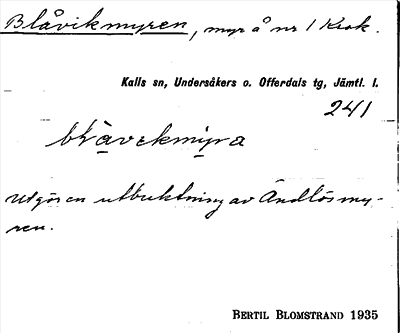 Blåvikmyren, myr å nr 1 Krok.
Kalls sn, Undersåkers o. Offerdals tg, Jämtl. l.
241
blavekmyra
Utgör en utbuktning av Ändlösmy-
ren.
BERTIL BLOMSTRAND 1935